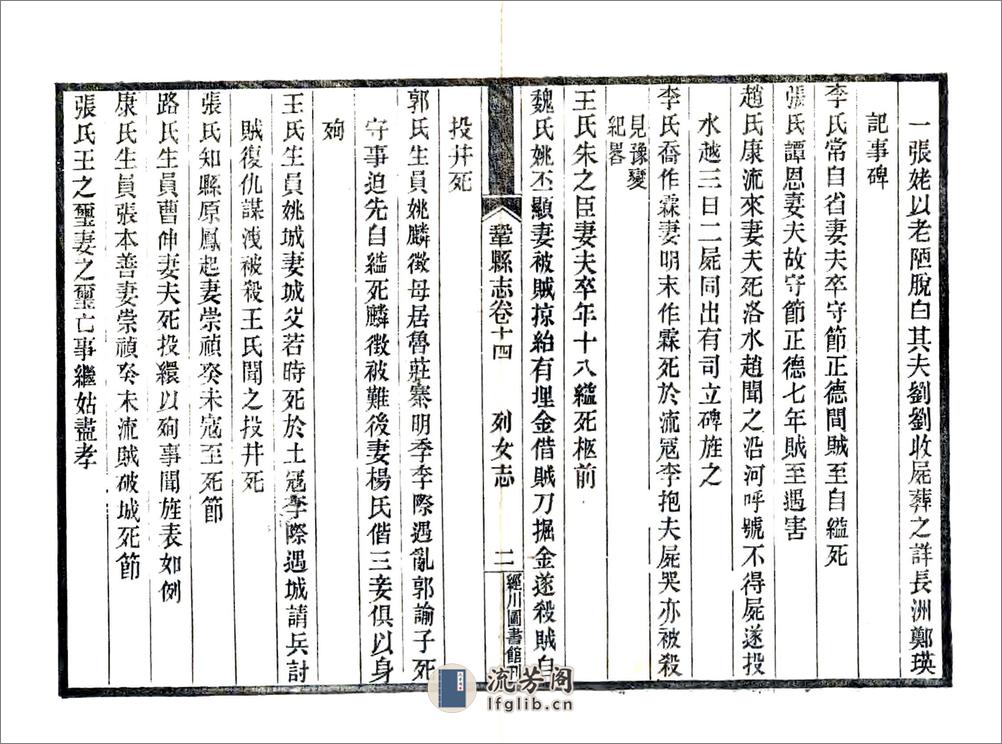 一張姥以老陋脫白其夫劉劉收屍葬之詳長洲鄭瑛
記事碑
李氏常自省妻夫卒守節正德間賊至自縊死
張氏譚恩妻夫故守節正德七年賊至遇害
趙氏康流來妻夫死洛水趙聞之沿河呼號不得屍遂投
水越三日二屍同出有司立碑旌之
李氏喬作霖妻明末作霖死於流寇李抱夫屍哭亦被殺
見豫變
紀畧
王氏朱之臣妻夫卒年十八縊死柩前
魏氏姚丕顯妻被賊掠紿有埋金借賊刀掘金遂殺賊自
鞏縣志卷十四 列女志 二 經川圖書館刊
投井死
郭氏生員姚麟徵母居魯莊寨明季李際遇亂郭諭子死
守事迫先自縊死麟徵被難後妻楊氏偕三妾俱以身
殉
王氏生員姚城妻城父若時死於土寇李際遇城請兵討
賊復仇謀洩被殺王氏聞之投井死
張氏知縣原鳳起妻崇禎癸未寇至死節
路氏生員曹伸妻夫死投繯以殉事聞旌表如例
康氏生員張本善妻崇禎癸未流賊破城死節
張氏王之璽妻之璽亡事繼姑盡孝
流芳阁
lfglib.cn